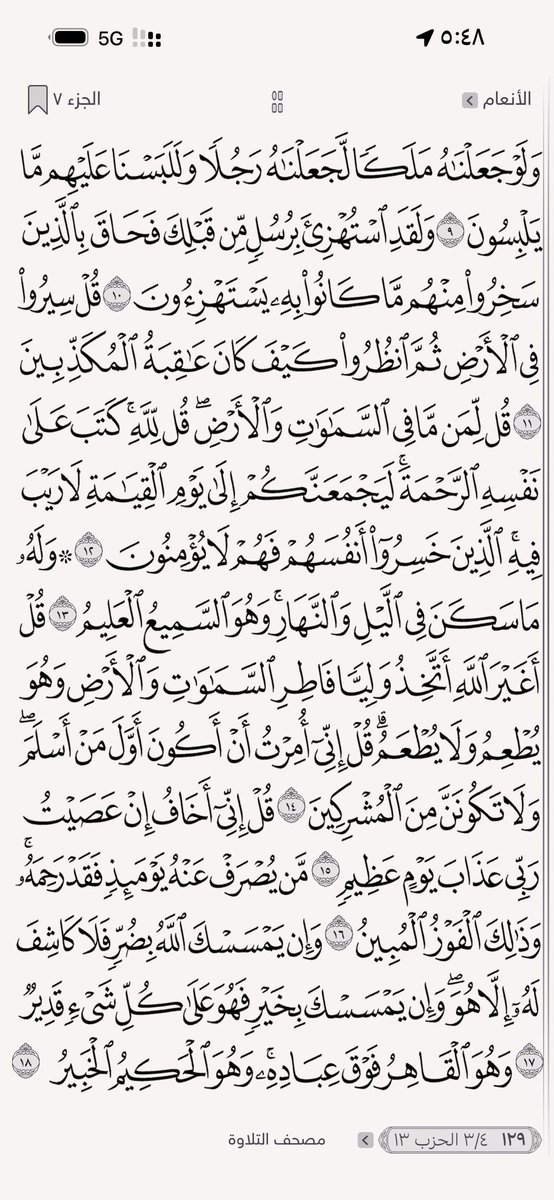 ٥:٤٨ 5G
الأنعام الجزء ٧
وَلَوْ جَعَلْنَٰهُ مَلَكًا لَّجَعَلْنَٰهُ رَجُلًا وَلَلَبَسْنَا عَلَيْهِم مَّا
يَلْبِسُونَ ٩ وَلَقَدِ ٱسْتُهْزِئَ بِرُسُلٍ مِّن قَبْلِكَ فَحَاقَ بِٱلَّذِينَ
سَخِرُوا۟ مِنْهُم مَّا كَانُوا۟ بِهِۦ يَسْتَهْزِءُونَ ١٠ قُلْ سِيرُوا۟
فِى ٱلْأَرْضِ ثُمَّ ٱنظُرُوا۟ كَيْفَ كَانَ عَٰقِبَةُ ٱلْمُكَذِّبِينَ
١١ قُل لِّمَن مَّا فِى ٱلسَّمَٰوَٰتِ وَٱلْأَرْضِ ۖ قُل لِّلَّهِ ۚ كَتَبَ عَلَىٰ
نَفْسِهِ ٱلرَّحْمَةَ ۚ لَيَجْمَعَنَّكُمْ إِلَىٰ يَوْمِ ٱلْقِيَٰمَةِ لَا رَيْبَ
فِيهِ ۚ ٱلَّذِينَ خَسِرُوٓا۟ أَنفُسَهُمْ فَهُمْ لَا يُؤْمِنُونَ ١٢ ۞ وَلَهُۥ
مَا سَكَنَ فِى ٱلَّيْلِ وَٱلنَّهَارِ ۚ وَهُوَ ٱلسَّمِيعُ ٱلْعَلِيمُ ١٣ قُلْ
أَغَيْرَ ٱللَّهِ أَتَّخِذُ وَلِيًّا فَاطِرِ ٱلسَّمَٰوَٰتِ وَٱلْأَرْضِ وَهُوَ
يُطْعِمُ وَلَا يُطْعَمُ ۗ قُلْ إِنِّىٓ أُمِرْتُ أَنْ أَكُونَ أَوَّلَ مَنْ أَسْلَمَ ۖ
وَلَا تَكُونَنَّ مِنَ ٱلْمُشْرِكِينَ ١٤ قُلْ إِنِّىٓ أَخَافُ إِنْ عَصَيْتُ
رَبِّى عَذَابَ يَوْمٍ عَظِيمٍ ١٥ مَّن يُصْرَفْ عَنْهُ يَوْمَئِذٍ فَقَدْ رَحِمَهُۥ ۚ
وَذَٰلِكَ ٱلْفَوْزُ ٱلْمُبِينُ ١٦ وَإِن يَمْسَسْكَ ٱللَّهُ بِضُرٍّ فَلَا كَاشِفَ
لَهُۥٓ إِلَّا هُوَ ۖ وَإِن يَمْسَسْكَ بِخَيْرٍ فَهُوَ عَلَىٰ كُلِّ شَىْءٍ قَدِيرٌ
١٧ وَهُوَ ٱلْقَاهِرُ فَوْقَ عِبَادِهِۦ ۚ وَهُوَ ٱلْحَكِيمُ ٱلْخَبِيرُ ١٨
١٢٩ ٣/٤ الحزب ١٣ مصحف التلاوة